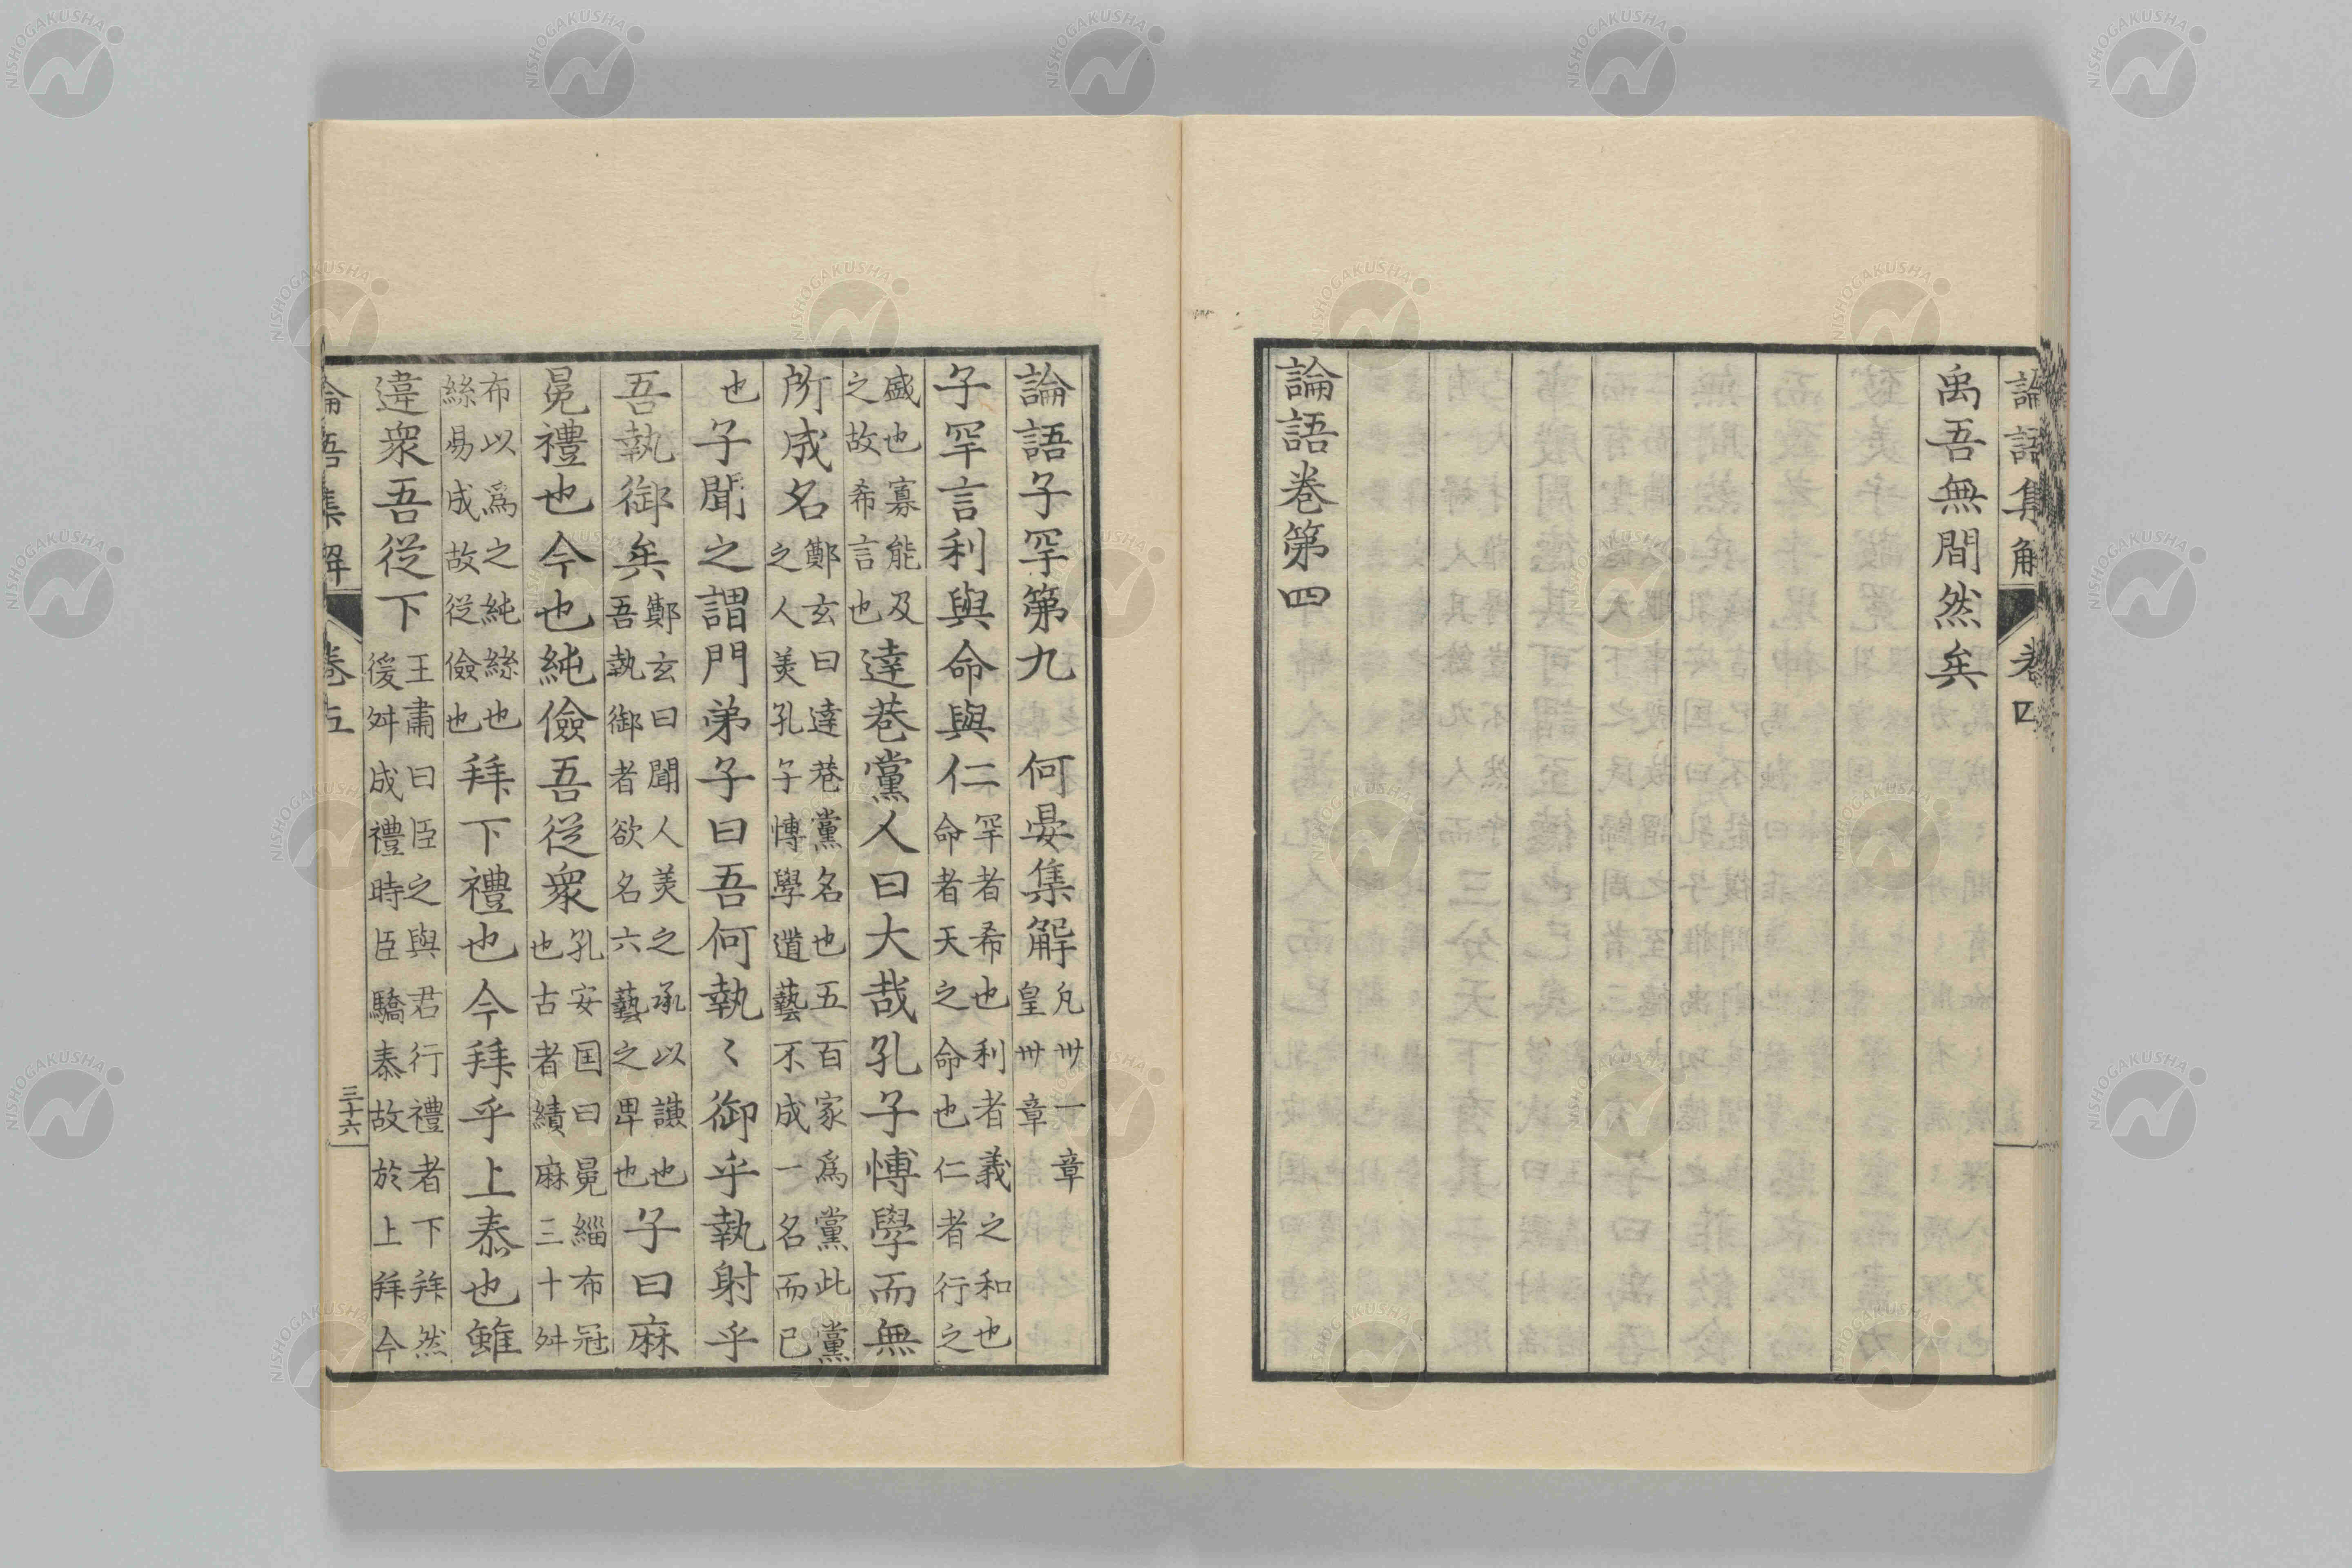 論語集解 卷四
禹吾無間然矣
論語卷第四
論語子罕第九 何晏集解 凡卅一章 皇卅章
子罕言利與命與仁 罕者希也利者義之和也 命者天之命也仁者行之
盛也寡能及 之故希言也 達巷黨人曰大哉孔子博學而無
所成名 鄭玄曰達巷黨名也五百家爲黨此黨 之人美孔子博學道藝不成一名而已
也子聞之謂門弟子曰吾何執〻御乎執射乎
吾執御矣 鄭玄曰聞人美之承以謙也 吾執御者欲名六藝之卑也 子曰麻
冕禮也今也純儉吾從衆 孔安国曰冕緇布冠 也古者績麻三十升
布以爲之純絲也 絲易成故從儉也 拜下禮也今拜乎上泰也雖
違衆吾從下 王肅曰臣之與君行禮者下拜然 後升成禮時臣驕泰故於上拜今
論語集解 卷五 三十六
NISHOGAKUSHA